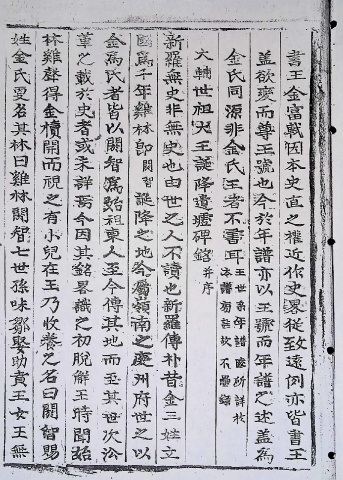 書王金富軾因本史直之權近作史畧從致遠例亦皆書王
盖欲変而尊王號也今於年譜亦以王號而年譜之述盖為
金氏同源非金氏王者不書耳
大輔世祖大王誕降遺墟碑銘 并序
新羅無史非無史也由世之人不讀也新羅傳朴昔金三姓立
國為千年雞林即閼智誕降之地今屬嶺南之慶州府世之以
金為氏者皆以閼智為始祖東人至今傳其地而至其世次沿
革之載於史者或未詳焉今因其銘畧識之初脫解王時聞始
林雞聲得金樻開而視之有小兒在王乃收養之名曰閼智賜
姓金氏更名其林曰雞林閼智七世孫味鄒娶助賁王女王無